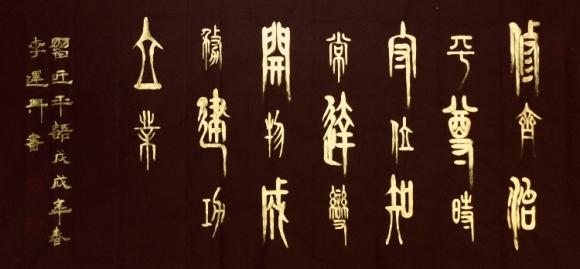 修齊治
平尊時
守位知
常達變
開物成
務建功
立業
習近平語戊戌年春
李運書